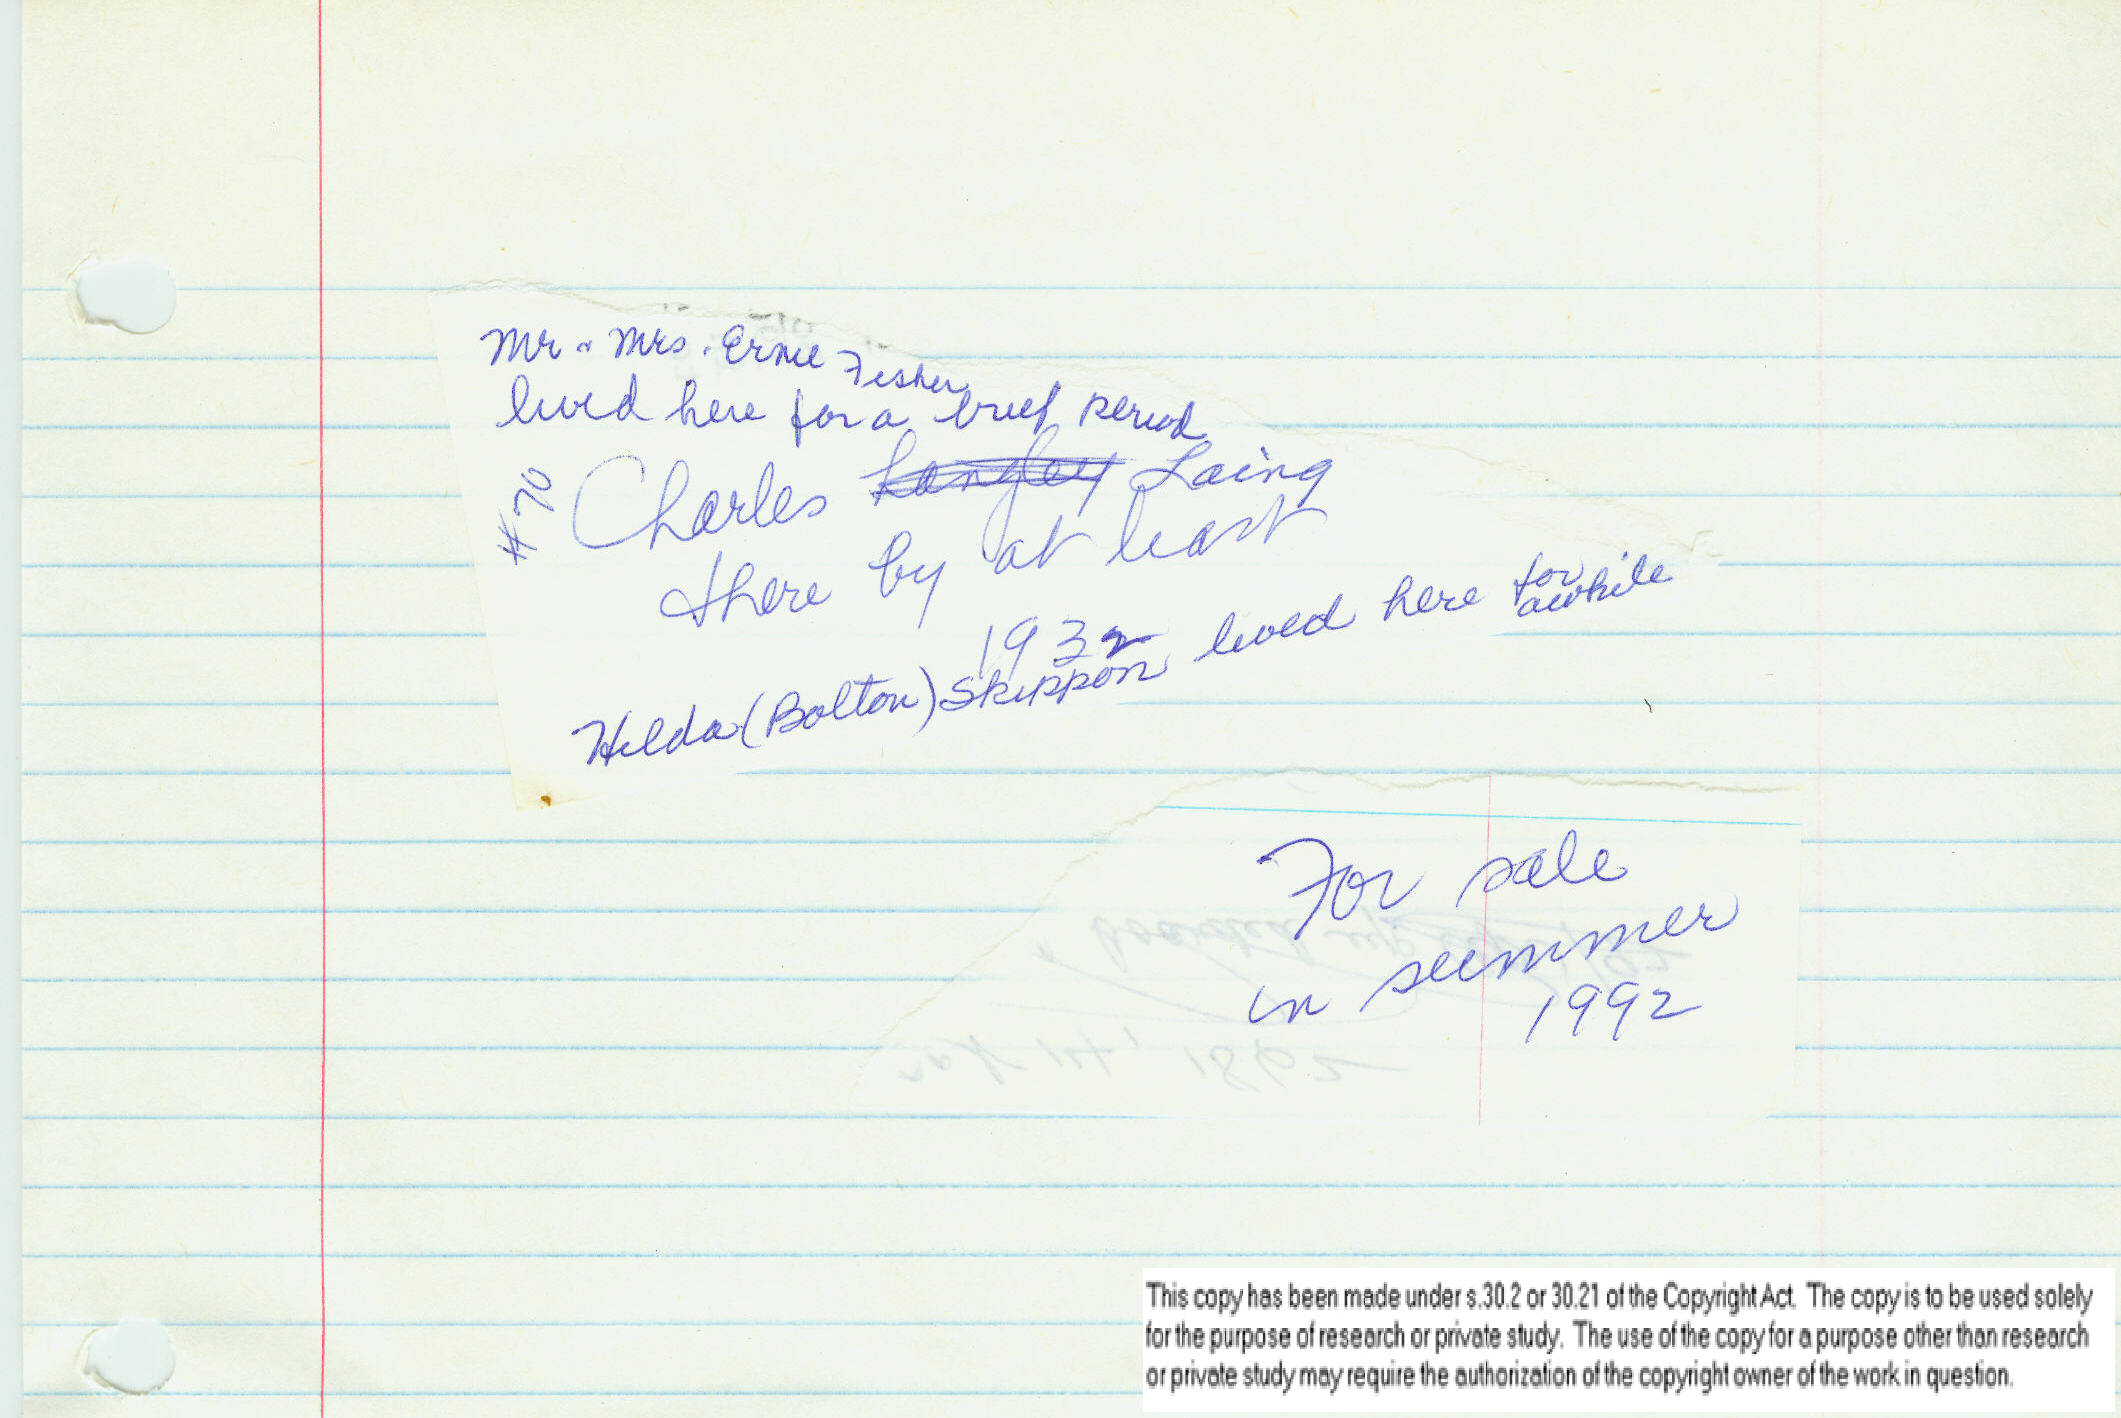 Mr & Mrs. Ernie Fisher
lived here for a brief period
#70
Charles Langley Laing
there by at least
1932
Hilda (Bolton) Skippon lived here for awhile
For sale
in summer
1992
This copy has been made under s.30.2 or 30.21 of the Copyright Act. The copy is to be used solely
for the purpose of research or private study. The use of the copy for a purpose other than research
or private study may require the authorization of the copyright owner of the work in question.